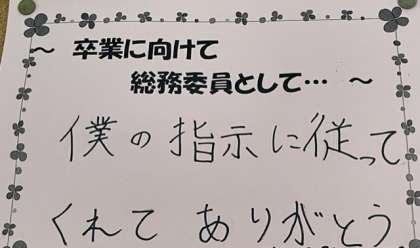 ～ 卒業に向けて
総務委員として… ～
僕の指示に従って
くれて ありがとう